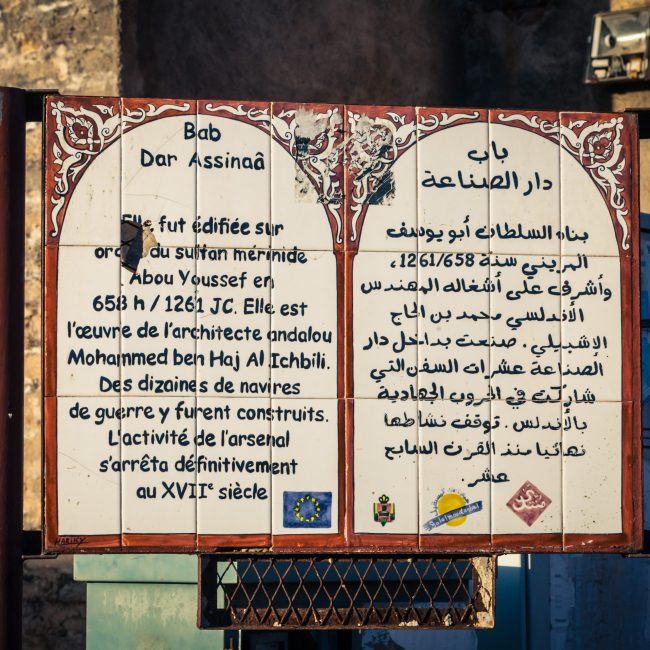 Bab
Dar Assinaâ
Elle fut édifiée sur
du sultan mérinide
Abou Youssef en
658 h / 1261 JC. Elle est
l'œuvre de l'architecte andalou
Mohammed ben Haj Al Ichbili.
Des dizaines de navires
de guerre y furent construits.
L'activité de l'arsenal
s'arrêta définitivement
au XVIIᵉ siècle
باب
دار الصناعة
بناه السلطان أبو يوسف
المريني سنة 1261/658،
وأشرف على أشغاله المهندس
الأندلسي محمد بن الحاج
الإشبيلي. صنعت بداخل دار
الصناعة عشرات السفن التي
شاركت في الحروب الجهادية
بالأندلس. توقف نشاطها
نهائيا منذ القرن السابع
عشر